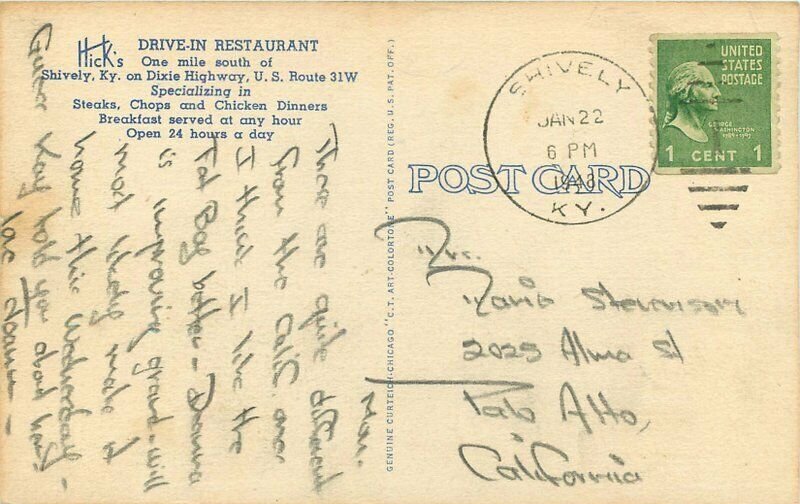 Hick's DRIVE-IN RESTAURANT
One mile south of
Shively, Ky. on Dixie Highway, U.S. Route 31W
Specializing in
Steaks, Chops and Chicken Dinners
Breakfast served at any hour
Open 24 hours a day
Mon.
These are quite different
from the Calif. ones
I think I like the
Tad Boy better - Donna
is improving grand - will
most likely make it
home this Wednesday -
told you about
GENUINE CURTEICH-CHICAGO "C.T. ART-COLORTONE" POST CARD (REG. U.S. PAT. OFF.)
POST CARD
SHIVELY
JAN 22
6 PM
KY.
UNITED
STATES
POSTAGE
GEORGE
WASHINGTON
1789-1797
1 CENT 1
Stevenson
2025 Alma St
Palo Alto,
California